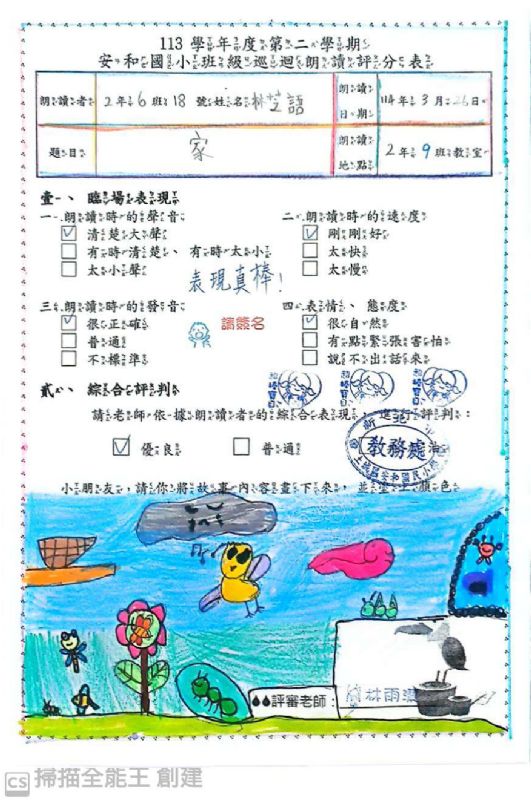 113 學年度第二學期
安和國小班級巡迴朗讀評分表
朗讀者 2年6班18號姓名林芝語 朗讀日期 114年3月26日
題目 家 朗讀地點 2年9班教室
壹、臨場表現
一、朗讀時的聲音 二、朗讀時的速度
清楚大聲 剛剛好
有時清楚、有時太小 太快
太小聲 太慢
表現真棒!
三、朗讀時的發音 四、表情、態度
很正確 很自然
普通 有點緊張害怕
不標準 說不出話來
請簽名
貳、綜合評判
請老師依據朗讀者的綜合表現,進行評判:
優良 普通
教務處
小朋友,請你將故事內容畫下來,並塗上顏色
評審老師: 林雨
CS 掃描全能王 創建